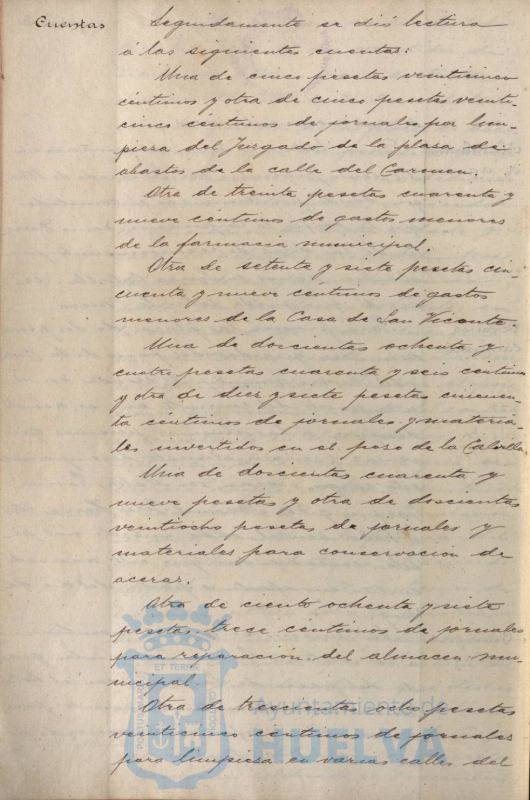 Cuentas
Seguidamente se dió lectura
á las siguientes cuentas:
Una de cinco pesetas veinticinco
céntimos y otra de cinco pesetas veinti-
cinco céntimos de jornales por lim-
pieza del Juzgado de la plaza de
abastos de la calle del Carmen.
Otra de treinta pesetas cuarenta y
nueve céntimos de gastos menores
de la farmacia municipal.
Otra de setenta y siete pesetas cin-
cuenta y nueve céntimos de gastos
menores de la Casa de San Vicente.
Una de doscientas ochenta y
cuatro pesetas cuarenta y seis céntimos
y otra de diez y siete pesetas cincuen-
ta céntimos de jornales y materia-
les invertidos en el pozo de la
Una de doscientas cuarenta y
nueve pesetas y otra de doscientas
veintiocho pesetas de jornales y
materiales para conservación de
aceras.
Otra de ciento ochenta y siete
pesetas trece céntimos de jornales
para reparación del almacén mu-
nicipal.
Otra de trescientas ocho pesetas
veinticinco céntimos de jornales
para limpieza en varias calles del
Ayuntamiento de
HUELVA